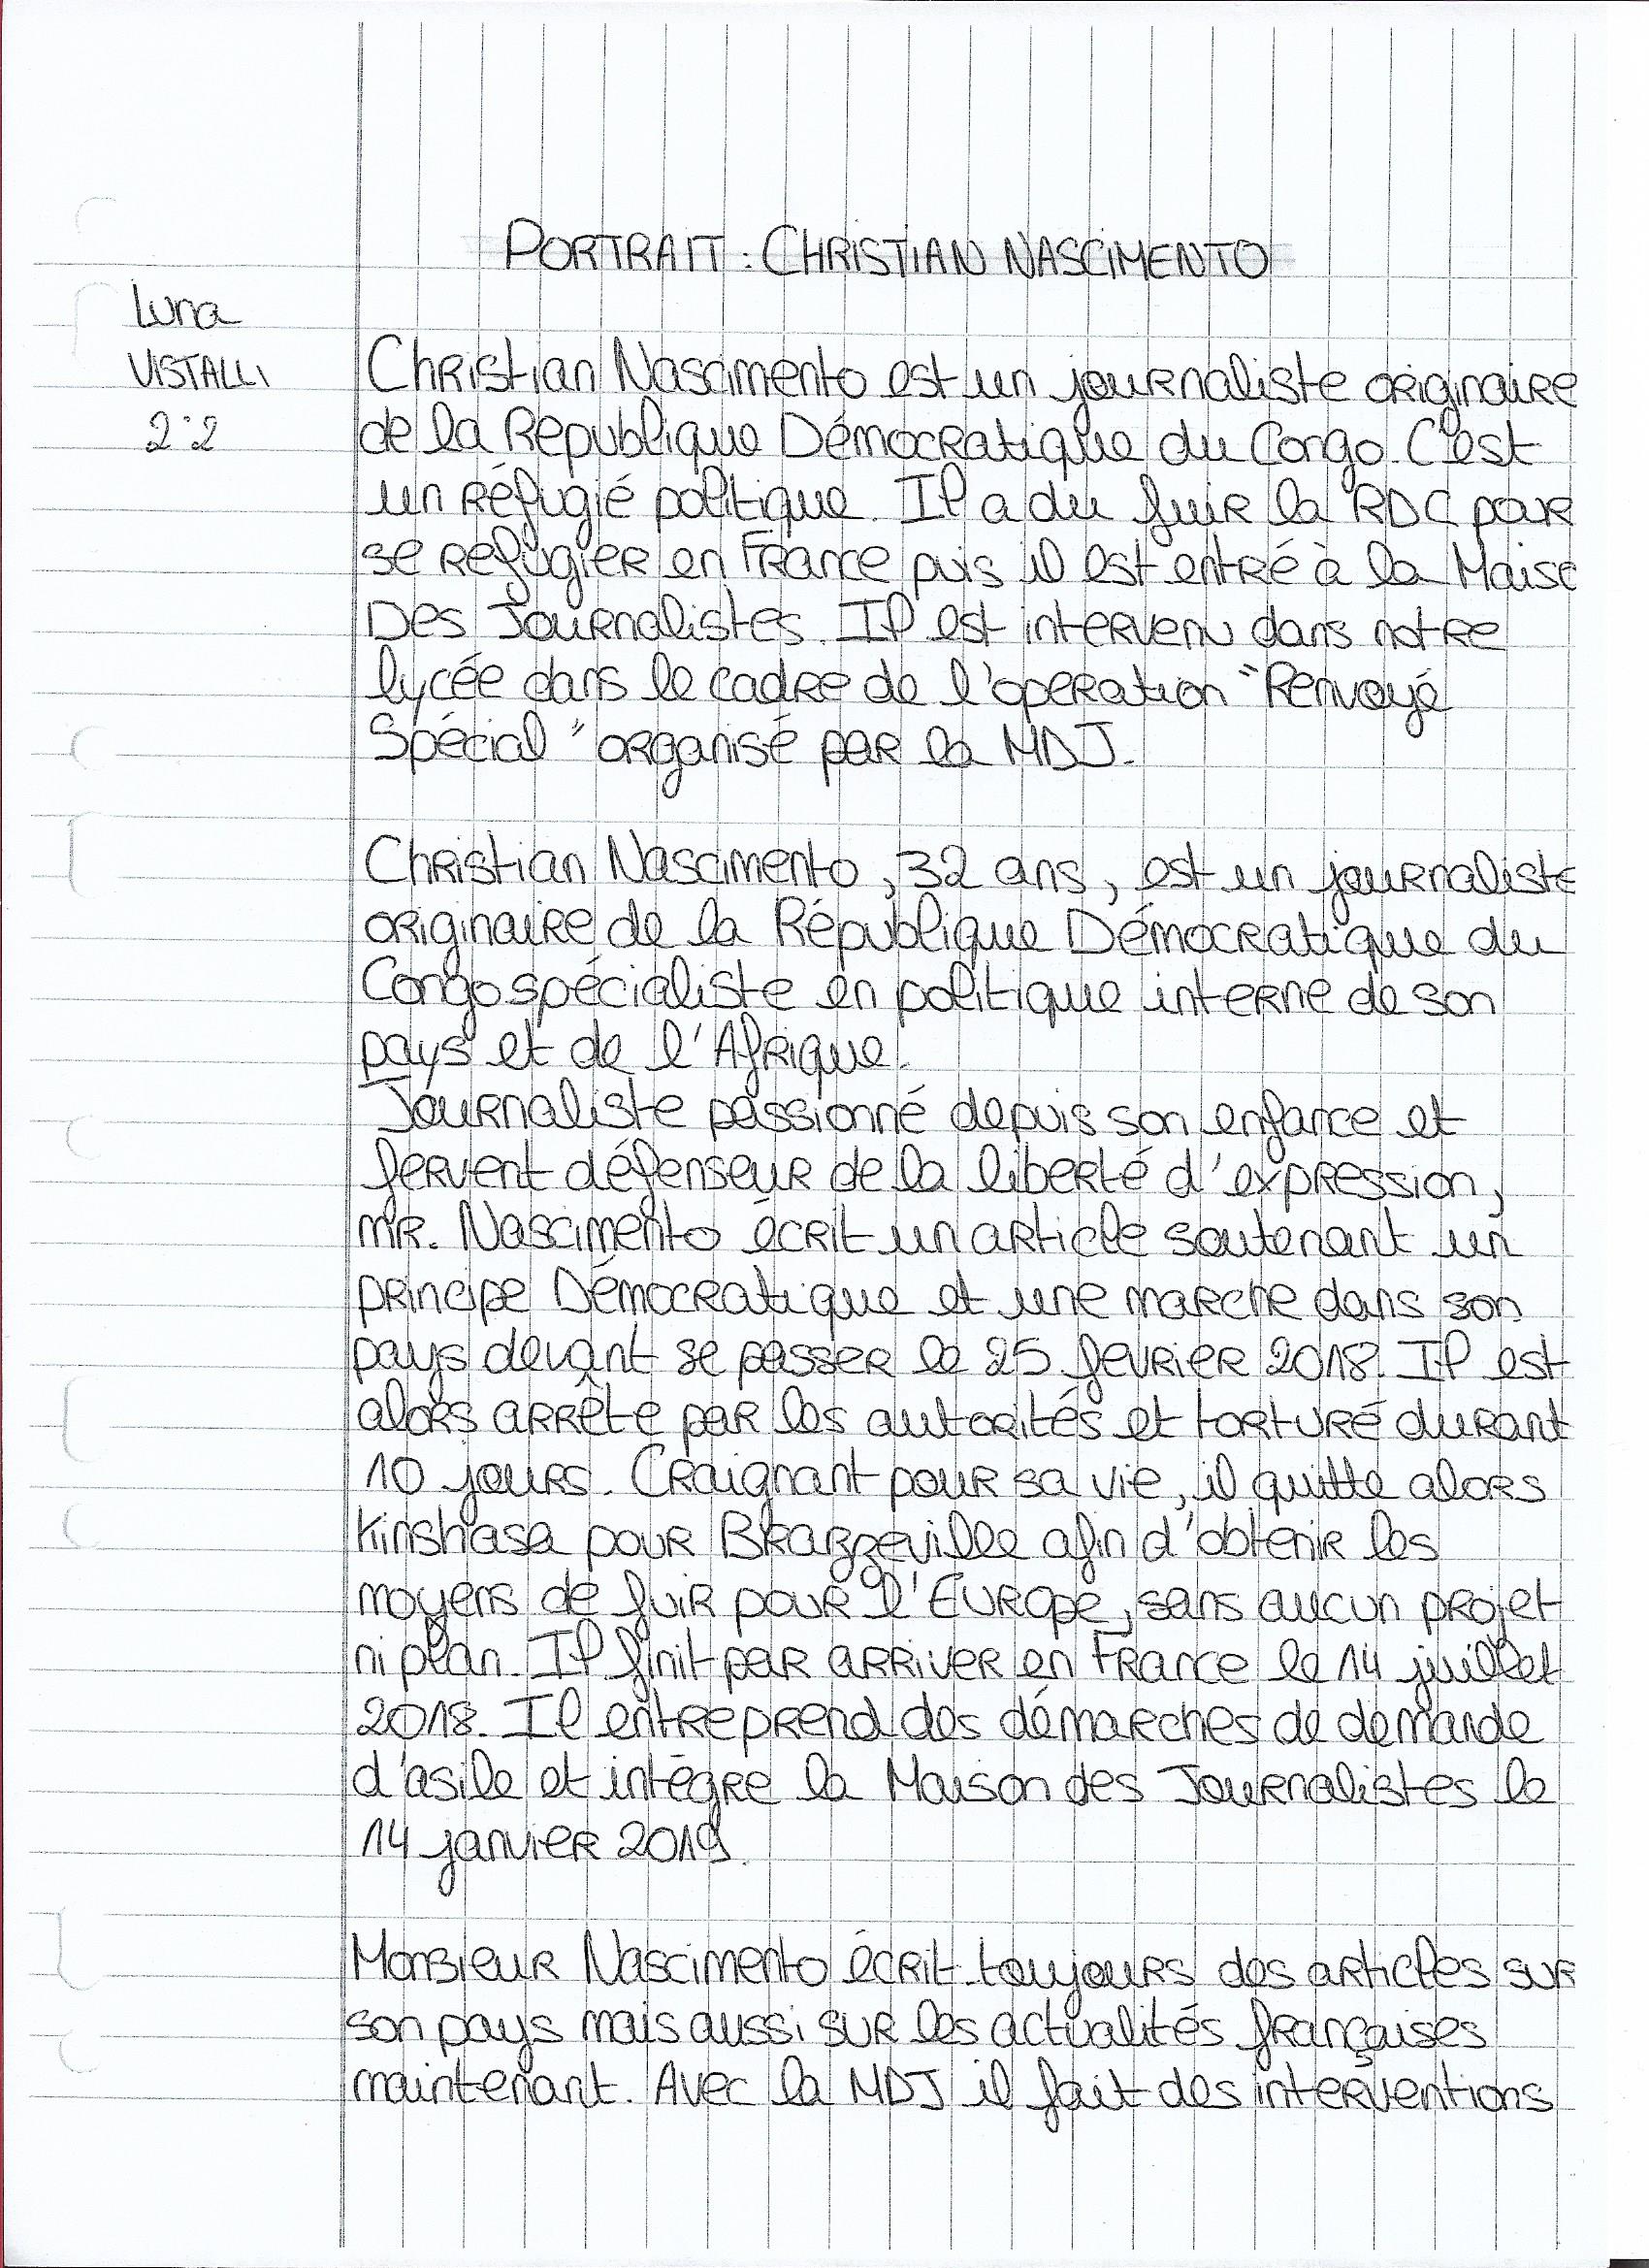 PORTRAIT : CHRISTIAN NASCIMENTO
Luna
VISTALLI
2°2
Christian Nascimento est un journaliste originaire
de la République Démocratique du Congo. C'est
un réfugié politique. Il a du fuir la RDC pour
se refugier en France puis il est entré à la Maiso
Des Journalistes. Il est intervenu dans notre
lycée dans le cadre de l'operation "Renvoyé
Spécial" organisé par la MDJ.
Christian Nascimento, 32 ans, est un journaliste
originaire de la République Démocratique du
Congo spécialiste en politique interne de son
pays et de l'Afrique.
Journaliste passionné depuis son enfance et
fervent défenseur de la liberté d'expression,
mr. Nascimento écrit un article soutenant un
principe Démocratique et une marche dans son
pays devant se passer le 25 fevrier 2018. Il est
alors arrête par les autorités et torturé durant
10 jours. Craignant pour sa vie, il quitte alors
Kinshasa pour Brazzeville afin d'obtenir les
moyens de fuir pour l'Europe, sans aucun projet
ni plan. Il finit par arriver en France le 14 juillet
2018. Il entreprend des démarches de demande
d'asile et intègre la Maison des Journalistes le
14 janvier 2019.
Monsieur Nascimento écrit toujours des articles sur
son pays mais aussi sur les actualités françaises
maintenant. Avec la MDJ il fait des interventions